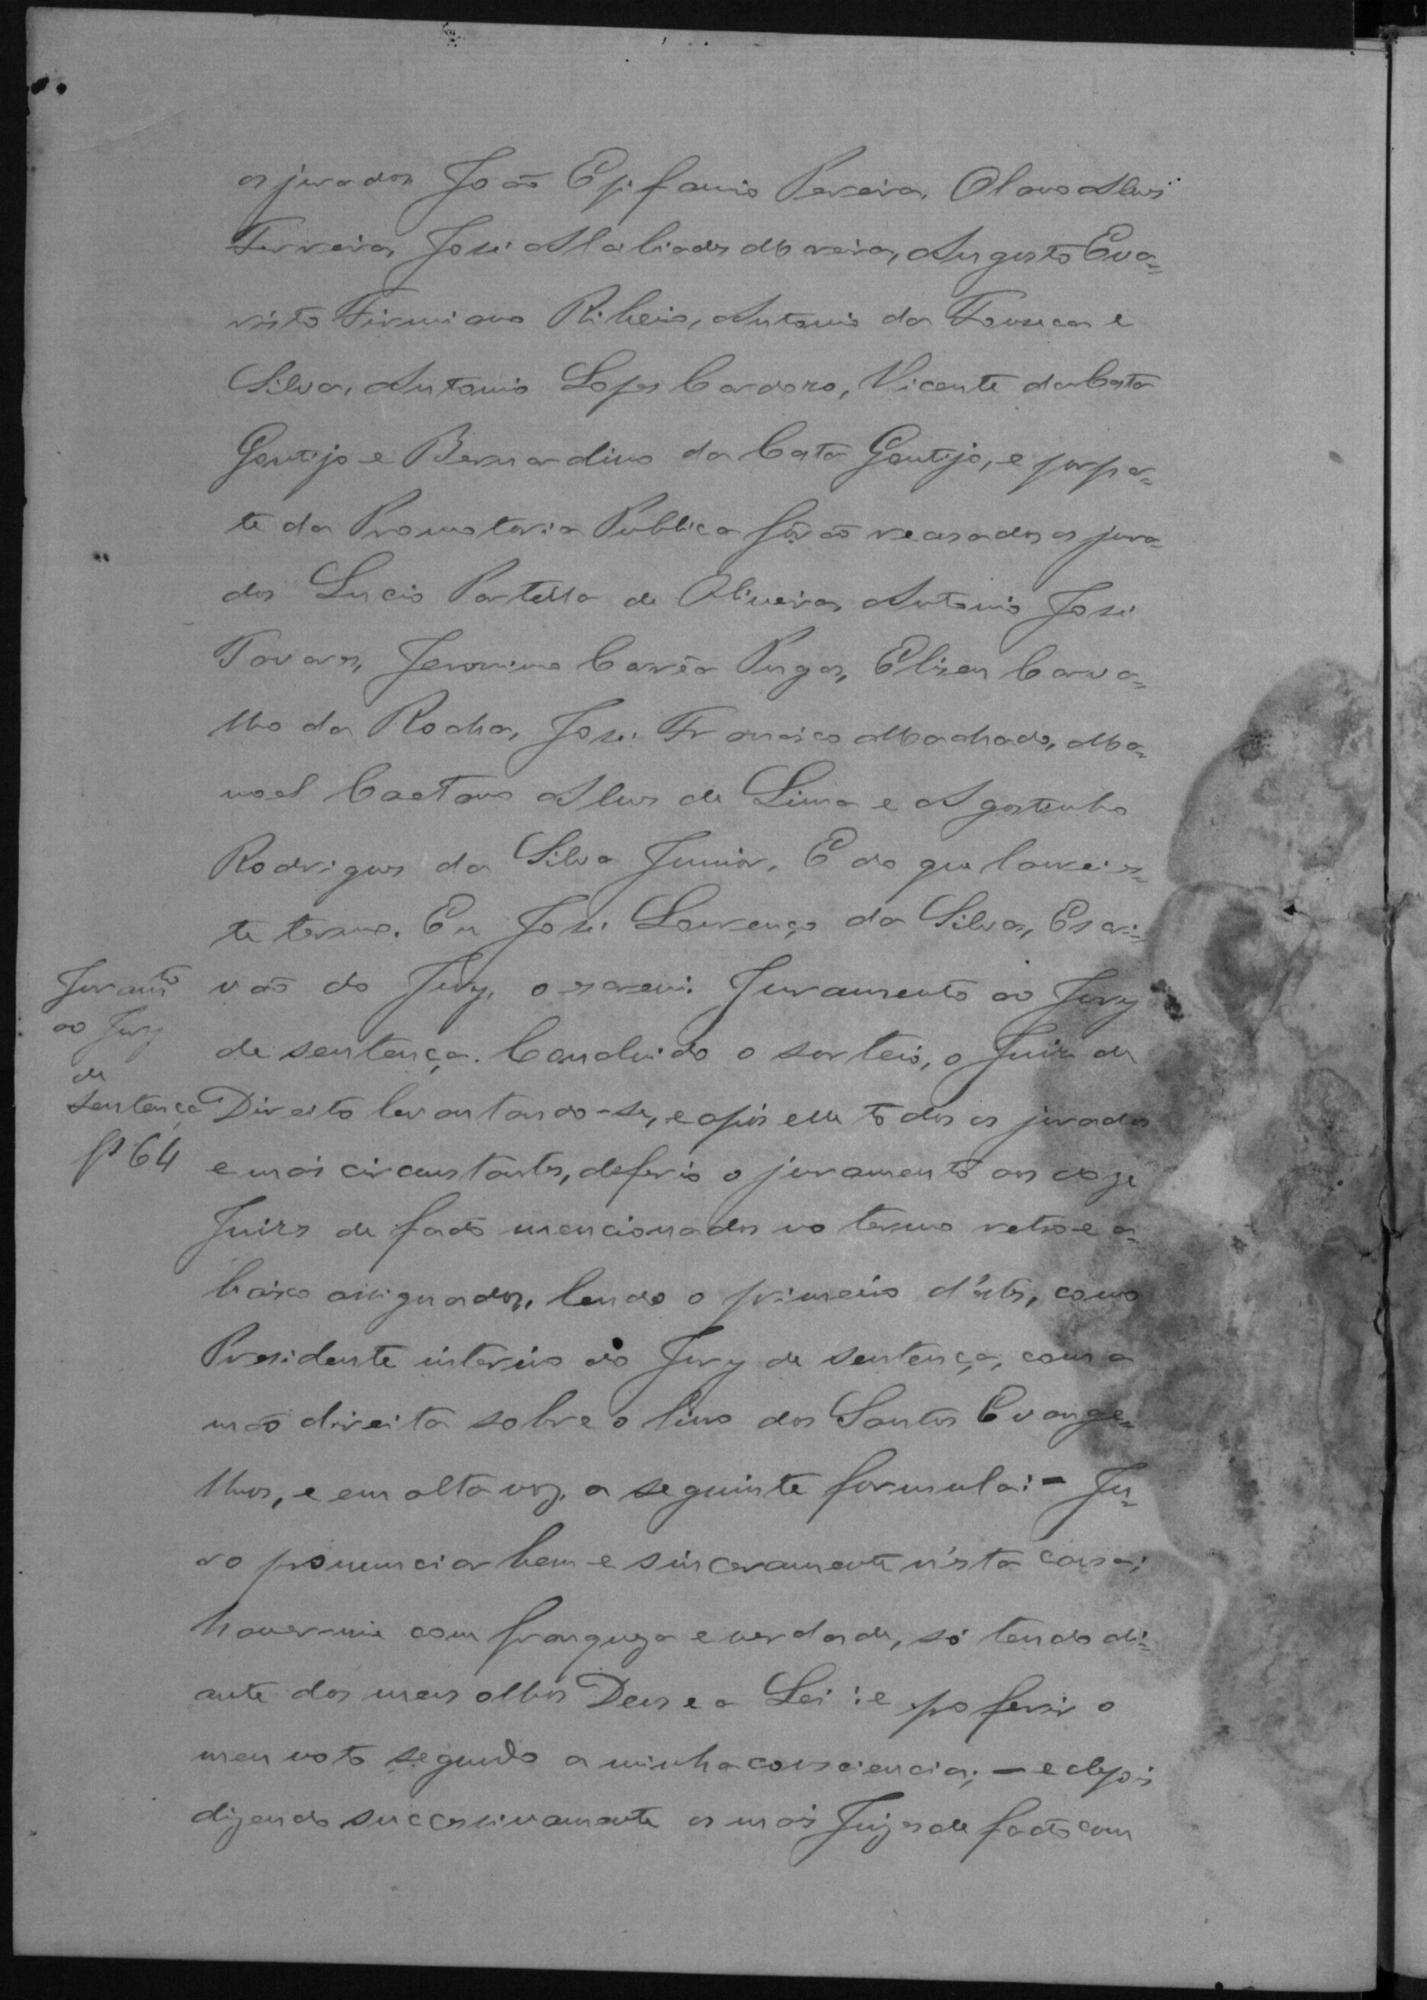 os jurados João Epifanio Pereira, Olavo Alves
Ferreira, José Moreira, Augusto Eva-
risto Firmiano Ribeiro, Antonio da Fonseca e
Silva, Antonio Lopes Cardozo, Vicente da Costa
Gontijo e Bernardino da Costa Gontijo, e por par-
te da Promotoria Publica forão recusados os jura-
dos Lucio Portella de Oliveira, Antonio José
Tavares, Jeronimo Corrêa Purgas, Eliseu Carva-
lho da Rocha, José Francisco Machado, Ma-
noel Caetano Alves de Lima e Agostinho
Rodrigues da Silva Junior. E do que lavrei es-
te termo. Eu José Lourenço da Silva, Escri-
vão do Jury, o escrevi. Juramento ao Jury
Juramto
ao Jury
de
Sentença
fs 64
de sentença. Concluido o sorteio, o Juiz de
Direito levantando-se, e após elle todos os jurados
e mais circunstantes, deferio o juramento aos doze
Juizes de facto mencionados no termo retro e a-
baixo assignados, lendo o primeiro d'estes, como
Presidente interino do Jury de sentença, com a
mão direita sobre o livro dos Santos Evange-
lhos, e em alta voz, a seguinte formula: - Ju-
ro pronunciar bem e sinceramente n'esta causa;
haver-me com franqueza e verdade, só tendo di-
ante dos meus olhos Deus e a Lei: e proferir o
meu voto segundo a minha consciencia; - e depois
dizendo successivamente os mais Juizes de facto com